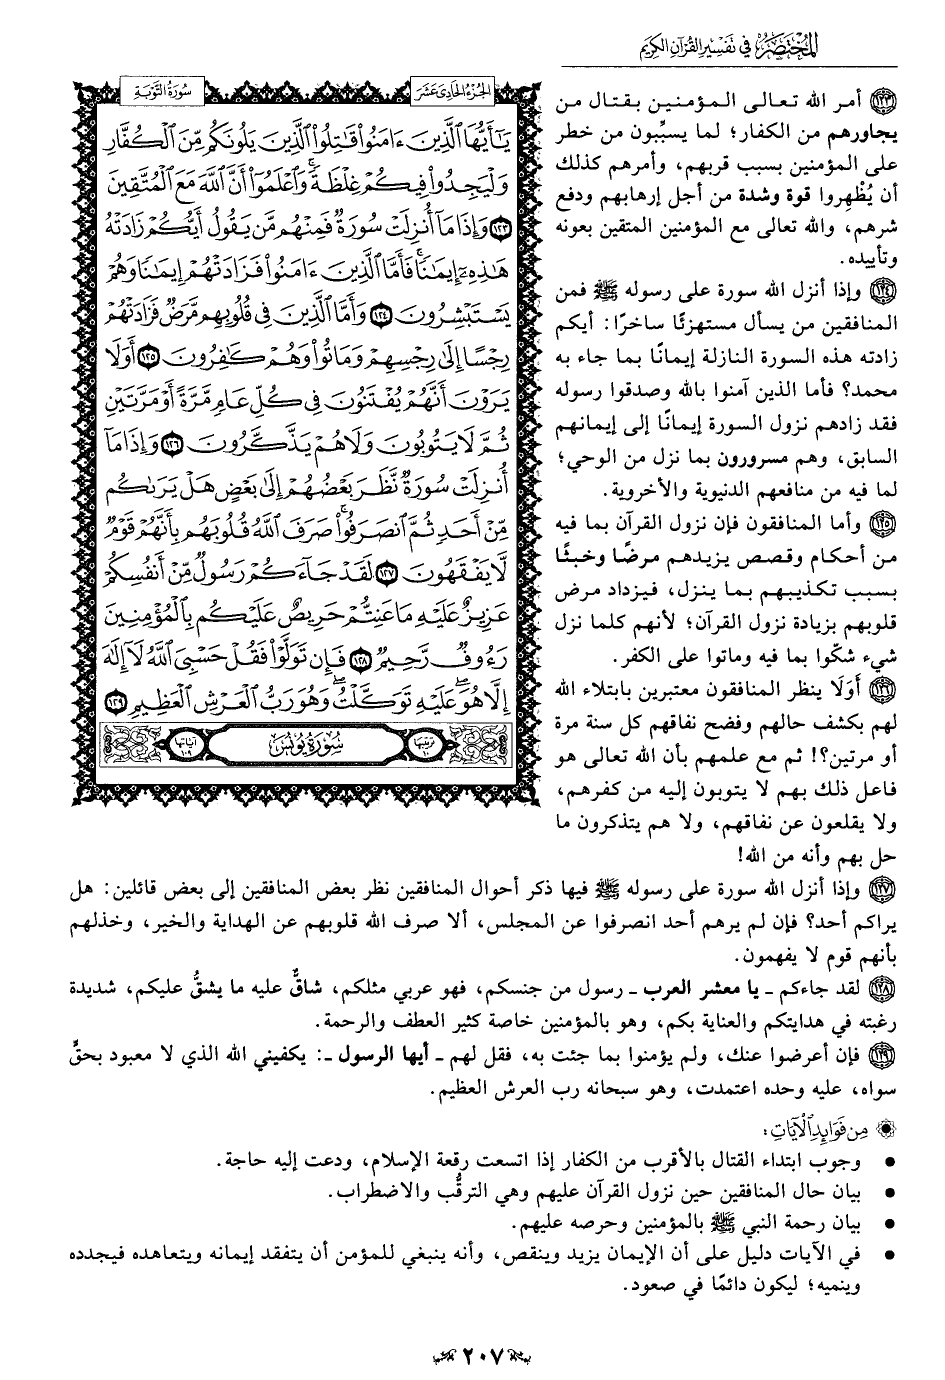 المختصر في تفسير القرآن الكريم
سُورَةُ التَّوْبَةِ
الجُزْءُ الحَادِي عَشَرَ
يَٰٓأَيُّهَا ٱلَّذِينَ ءَامَنُواْ قَٰتِلُواْ ٱلَّذِينَ يَلُونَكُم مِّنَ ٱلۡكُفَّارِ
وَلۡيَجِدُواْ فِيكُمۡ غِلۡظَةٗۚ وَٱعۡلَمُوٓاْ أَنَّ ٱللَّهَ مَعَ ٱلۡمُتَّقِينَ
١٢٣ وَإِذَا مَآ أُنزِلَتۡ سُورَةٞ فَمِنۡهُم مَّن يَقُولُ أَيُّكُمۡ زَادَتۡهُ
هَٰذِهِۦٓ إِيمَٰنٗاۚ فَأَمَّا ٱلَّذِينَ ءَامَنُواْ فَزَادَتۡهُمۡ إِيمَٰنٗا وَهُمۡ
يَسۡتَبۡشِرُونَ ١٢٤ وَأَمَّا ٱلَّذِينَ فِي قُلُوبِهِم مَّرَضٞ فَزَادَتۡهُمۡ
رِجۡسًا إِلَىٰ رِجۡسِهِمۡ وَمَاتُواْ وَهُمۡ كَٰفِرُونَ ١٢٥ أَوَلَا
يَرَوۡنَ أَنَّهُمۡ يُفۡتَنُونَ فِي كُلِّ عَامٖ مَّرَّةً أَوۡ مَرَّتَيۡنِ
ثُمَّ لَا يَتُوبُونَ وَلَا هُمۡ يَذَّكَّرُونَ ١٢٦ وَإِذَا مَآ
أُنزِلَتۡ سُورَةٞ نَّظَرَ بَعۡضُهُمۡ إِلَىٰ بَعۡضٍ هَلۡ يَرَىٰكُم
مِّنۡ أَحَدٖ ثُمَّ ٱنصَرَفُواْۚ صَرَفَ ٱللَّهُ قُلُوبَهُم بِأَنَّهُمۡ قَوۡمٞ
لَّا يَفۡقَهُونَ ١٢٧ لَقَدۡ جَآءَكُمۡ رَسُولٞ مِّنۡ أَنفُسِكُمۡ
عَزِيزٌ عَلَيۡهِ مَا عَنِتُّمۡ حَرِيصٌ عَلَيۡكُم بِٱلۡمُؤۡمِنِينَ
رَءُوفٞ رَّحِيمٞ ١٢٨ فَإِن تَوَلَّوۡاْ فَقُلۡ حَسۡبِيَ ٱللَّهُ لَآ إِلَٰهَ
إِلَّا هُوَۖ عَلَيۡهِ تَوَكَّلۡتُۖ وَهُوَ رَبُّ ٱلۡعَرۡشِ ٱلۡعَظِيمِ ١٢٩
ترتيبها ١٠ سُورَةُ يُونُسَ آياتها ١٠٩
١٢٣ أمر الله تعالى المؤمنين بقتال من
يجاورهم من الكفار؛ لما يسبِّبون من خطر
على المؤمنين بسبب قربهم، وأمرهم كذلك
أن يُظْهِروا قوة وشدة من أجل إرهابهم ودفع
شرهم، والله تعالى مع المؤمنين المتقين بعونه
وتأييده.
١٢٤ وإذا أنزل الله سورة على رسوله ﷺ فمن
المنافقين من يسأل مستهزئًا ساخرًا: أيكم
زادته هذه السورة النازلة إيمانًا بما جاء به
محمد؟ فأما الذين آمنوا بالله وصدقوا رسوله
فقد زادهم نزول السورة إيمانًا إلى إيمانهم
السابق، وهم مسرورون بما نزل من الوحي؛
لما فيه من منافعهم الدنيوية والأخروية.
١٢٥ وأما المنافقون فإن نزول القرآن بما فيه
من أحكام وقصص يزيدهم مرضًا وخبثًا
بسبب تكذيبهم بما ينزل، فيزداد مرض
قلوبهم بزيادة نزول القرآن؛ لأنهم كلما نزل
شيء شكّوا بما فيه وماتوا على الكفر.
١٢٦ أَوَلَا ينظر المنافقون معتبرين بابتلاء الله
لهم بكشف حالهم وفضح نفاقهم كل سنة مرة
أو مرتين؟! ثم مع علمهم بأن الله تعالى هو
فاعل ذلك بهم لا يتوبون إليه من كفرهم،
ولا يقلعون عن نفاقهم، ولا هم يتذكرون ما
حل بهم وأنه من الله!
١٢٧ وإذا أنزل الله سورة على رسوله ﷺ فيها ذكر أحوال المنافقين نظر بعض المنافقين إلى بعض قائلين: هل
يراكم أحد؟ فإن لم يرهم أحد انصرفوا عن المجلس، ألا صرف الله قلوبهم عن الهداية والخير، وخذلهم
بأنهم قوم لا يفهمون.
١٢٨ لقد جاءكم ـ يا معشر العرب ـ رسول من جنسكم، فهو عربي مثلكم، شاقٌّ عليه ما يشقُّ عليكم، شديدة
رغبته في هدايتكم والعناية بكم، وهو بالمؤمنين خاصة كثير العطف والرحمة.
١٢٩ فإن أعرضوا عنك، ولم يؤمنوا بما جئت به، فقل لهم ـ أيها الرسول ـ: يكفيني الله الذي لا معبود بحقٍّ
سواه، عليه وحده اعتمدت، وهو سبحانه رب العرش العظيم.
مِن فَوَائِدِ الآيَاتِ:
• وجوب ابتداء القتال بالأقرب من الكفار إذا اتسعت رقعة الإسلام، ودعت إليه حاجة.
• بيان حال المنافقين حين نزول القرآن عليهم وهي الترقُّب والاضطراب.
• بيان رحمة النبي ﷺ بالمؤمنين وحرصه عليهم.
• في الآيات دليل على أن الإيمان يزيد وينقص، وأنه ينبغي للمؤمن أن يتفقد إيمانه ويتعاهده فيجدده
وينميه؛ ليكون دائمًا في صعود.
٢٠٧